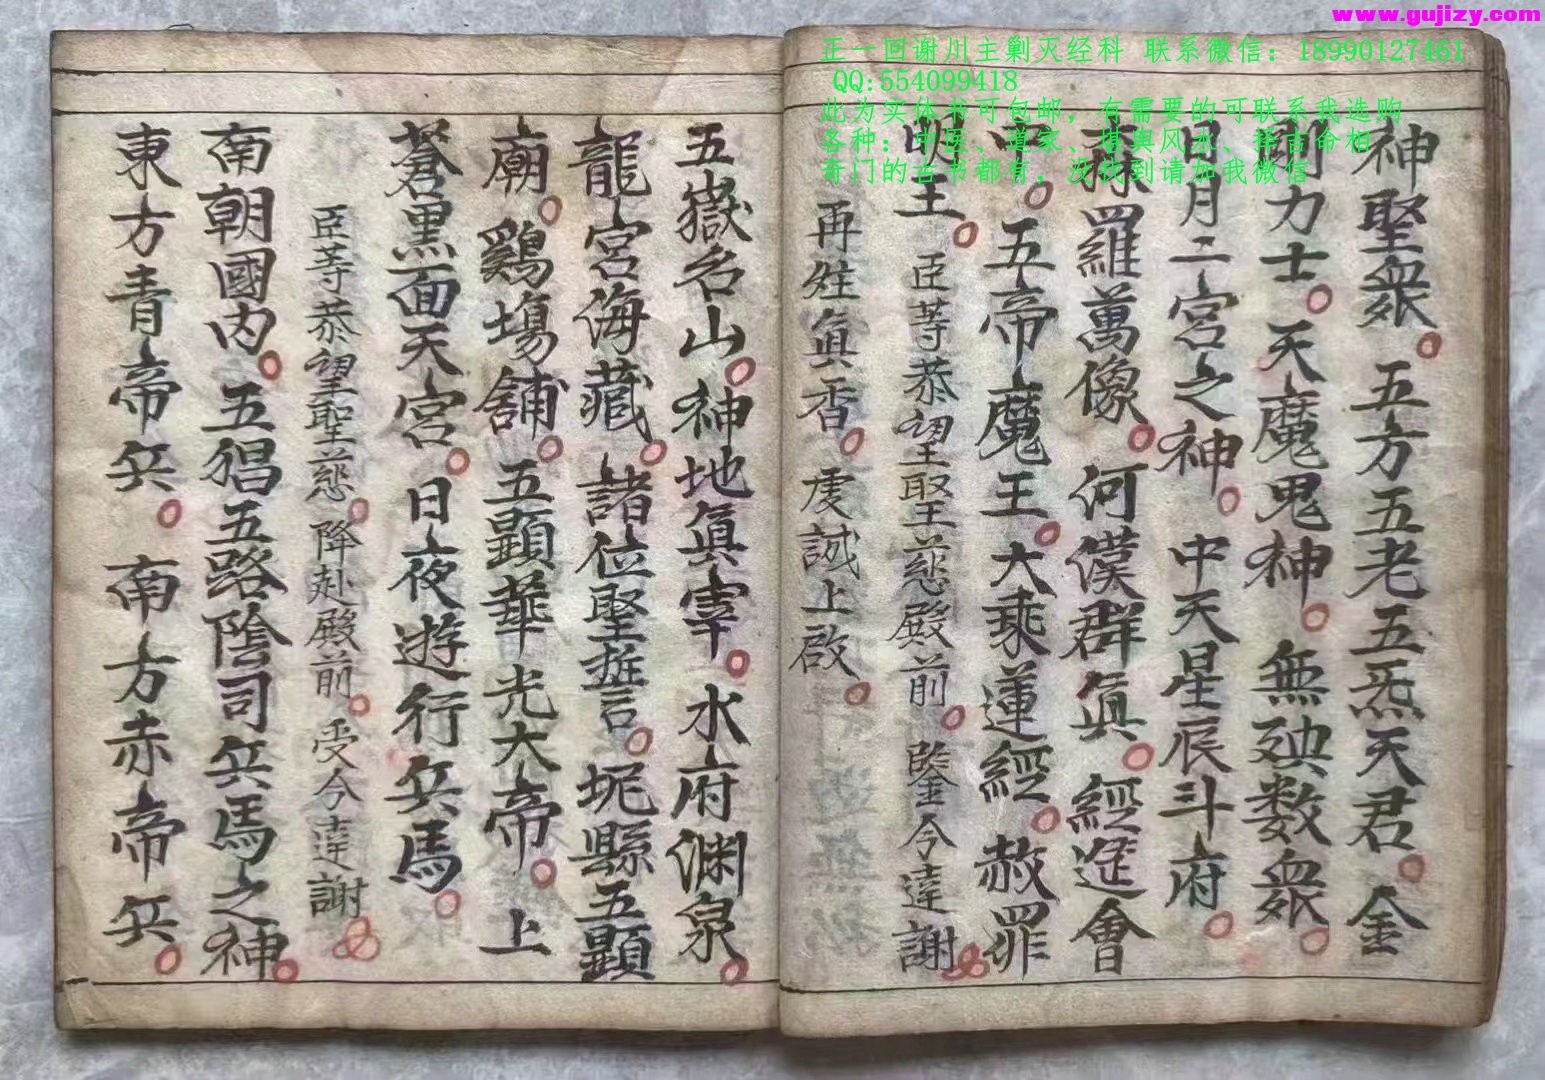 www.gujizy.com
正一回谢川主剿灭经科 联系微信：18990127461
QQ:554099418
此为实体书可包邮，有需要的可联系我选购
各种：中医、道家、堪舆风水、择吉命相
奇门的古书都有，没找到请加我微信
神聖衆。五方五老五炁天君。金
剛力士。天魔鬼神。無殃数衆。
日月二宮之神。中天星辰斗府。
森羅萬像。何漢群真。經進會
中。五帝魔王。大乘蓮經。赦罪
明王。臣等恭望聖慈殿前。鑒今達謝。
再炷真香。虔誠上啟。
五嶽名山。神地真宰。水府渊泉。
龍宮海藏。諸位聖誓言。坭縣五顯
廟。鷄塲舖。五顯華光大帝。上
蒼黒面天宮。日夜遊行兵馬。
臣等恭望聖慈。降赴殿前。受今達謝。
南朝國内。五猖五路陰司兵馬之神。
東方青帝兵。南方赤帝兵。